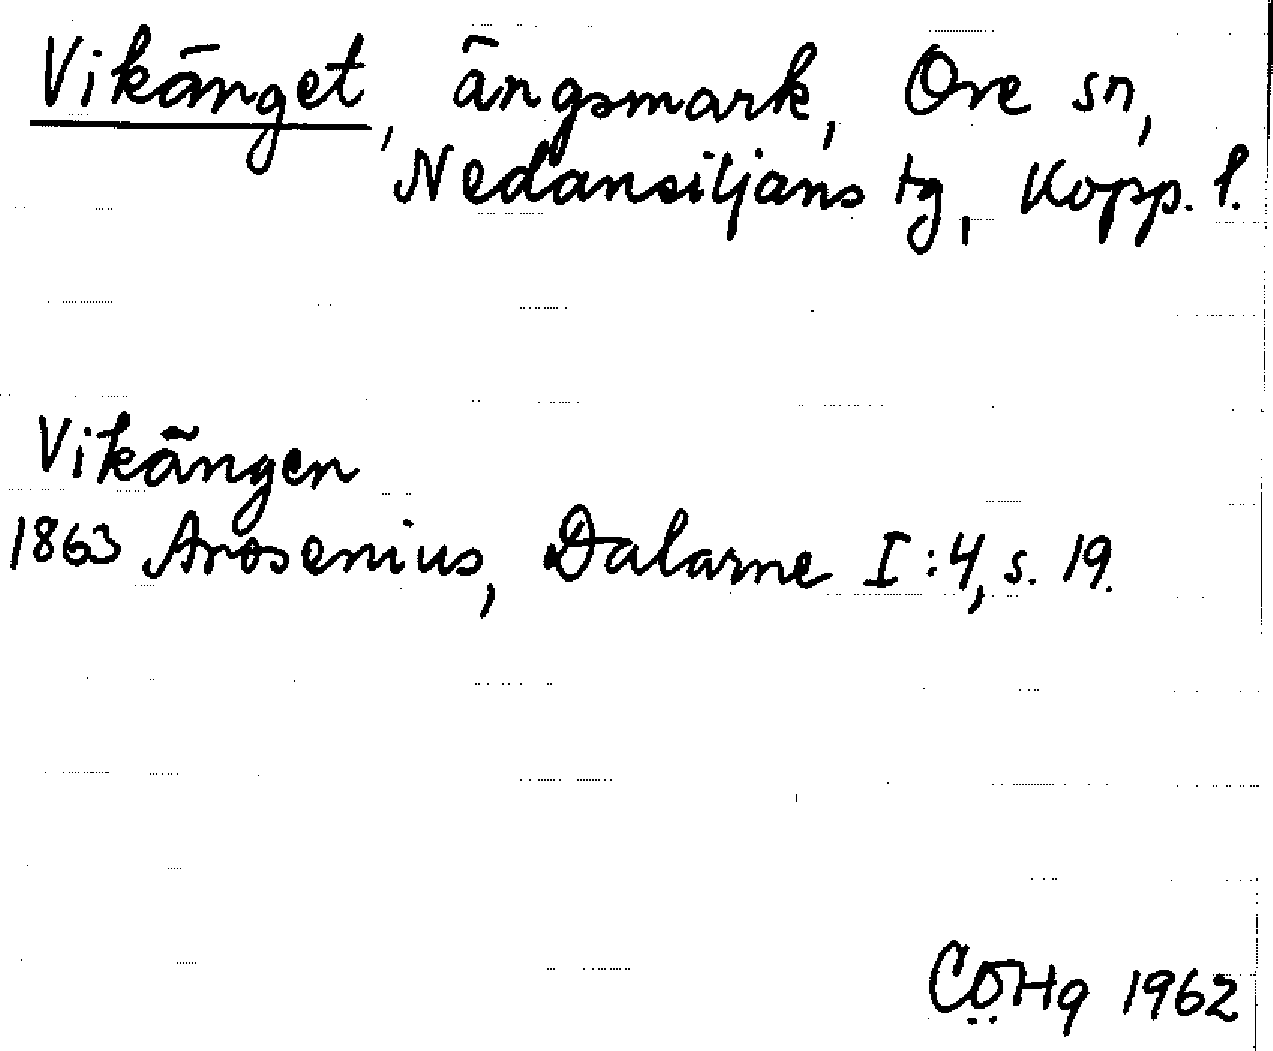 Vikänget, ängsmark, Ore sn,
Nedansiljans tg, Kopp. l.
Vikängen
1863 Arosenius, Dalarne I:4, s. 19.
CÖHg 1962